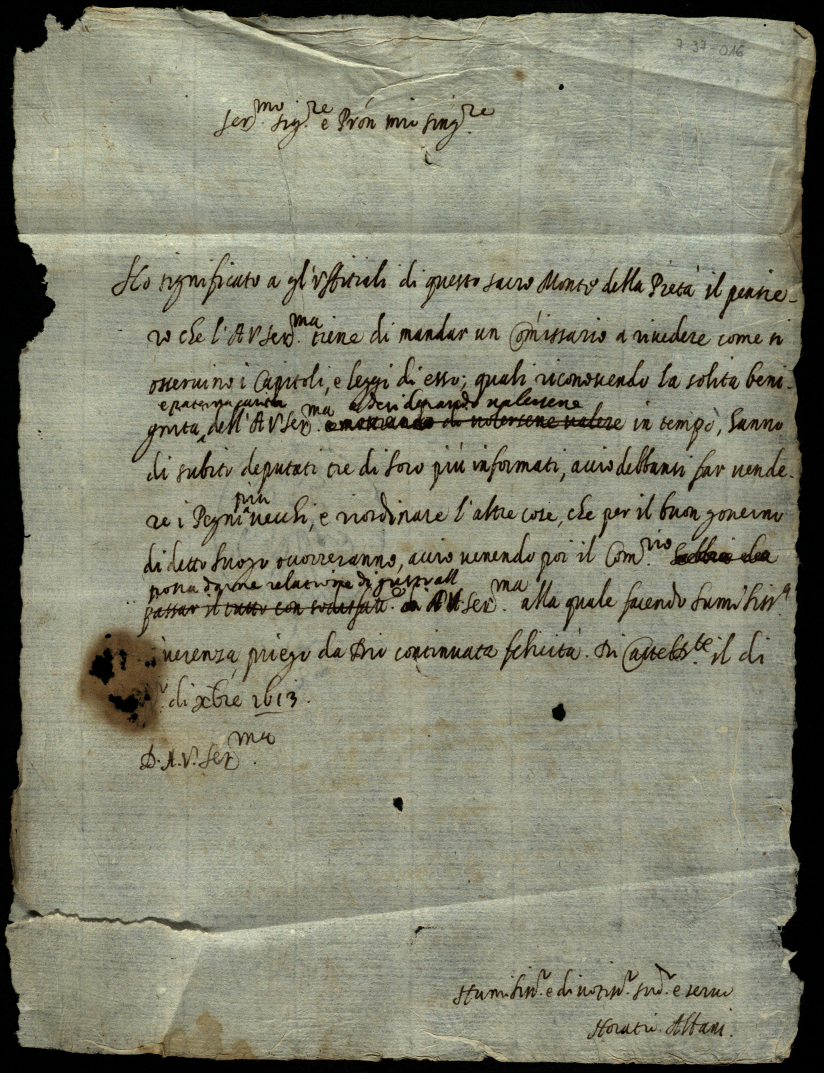 7-37-016
Ser.mo Sig.re e Pron mio sing.re
Ho significato a gl'Uffitiali di questo sacro Monte della Pietà il pensie-
ro che l'A V Ser.ma tiene di mandar un Com̃issario a rivedere come si
osservino i Capitoli, e leggi di esso; quali riconoscendo la solita beni-
e paterna carità e desiderando valersene
gnità dell'A V Ser.ma in tempo, hanno
di subito deputati tre di loro più informati, acciò debbansi far vende-
più
re i Pegni vecchi, e riordinare l'altre cose, che per il buon governo
di detto luogo occorreranno, acciò venendo poi il Com.rio
possa darne relatione di gusto all
passar il tutto con sodisfatt.e A V Ser.ma alla quale facendo humiliss.a
verenza priego da Dio continuata felicità. Di il di
di xbre 1613.
D. A. V. Ser.ma
Humiliss.o e divotiss.o sud.o e servo
Horatio Albani.